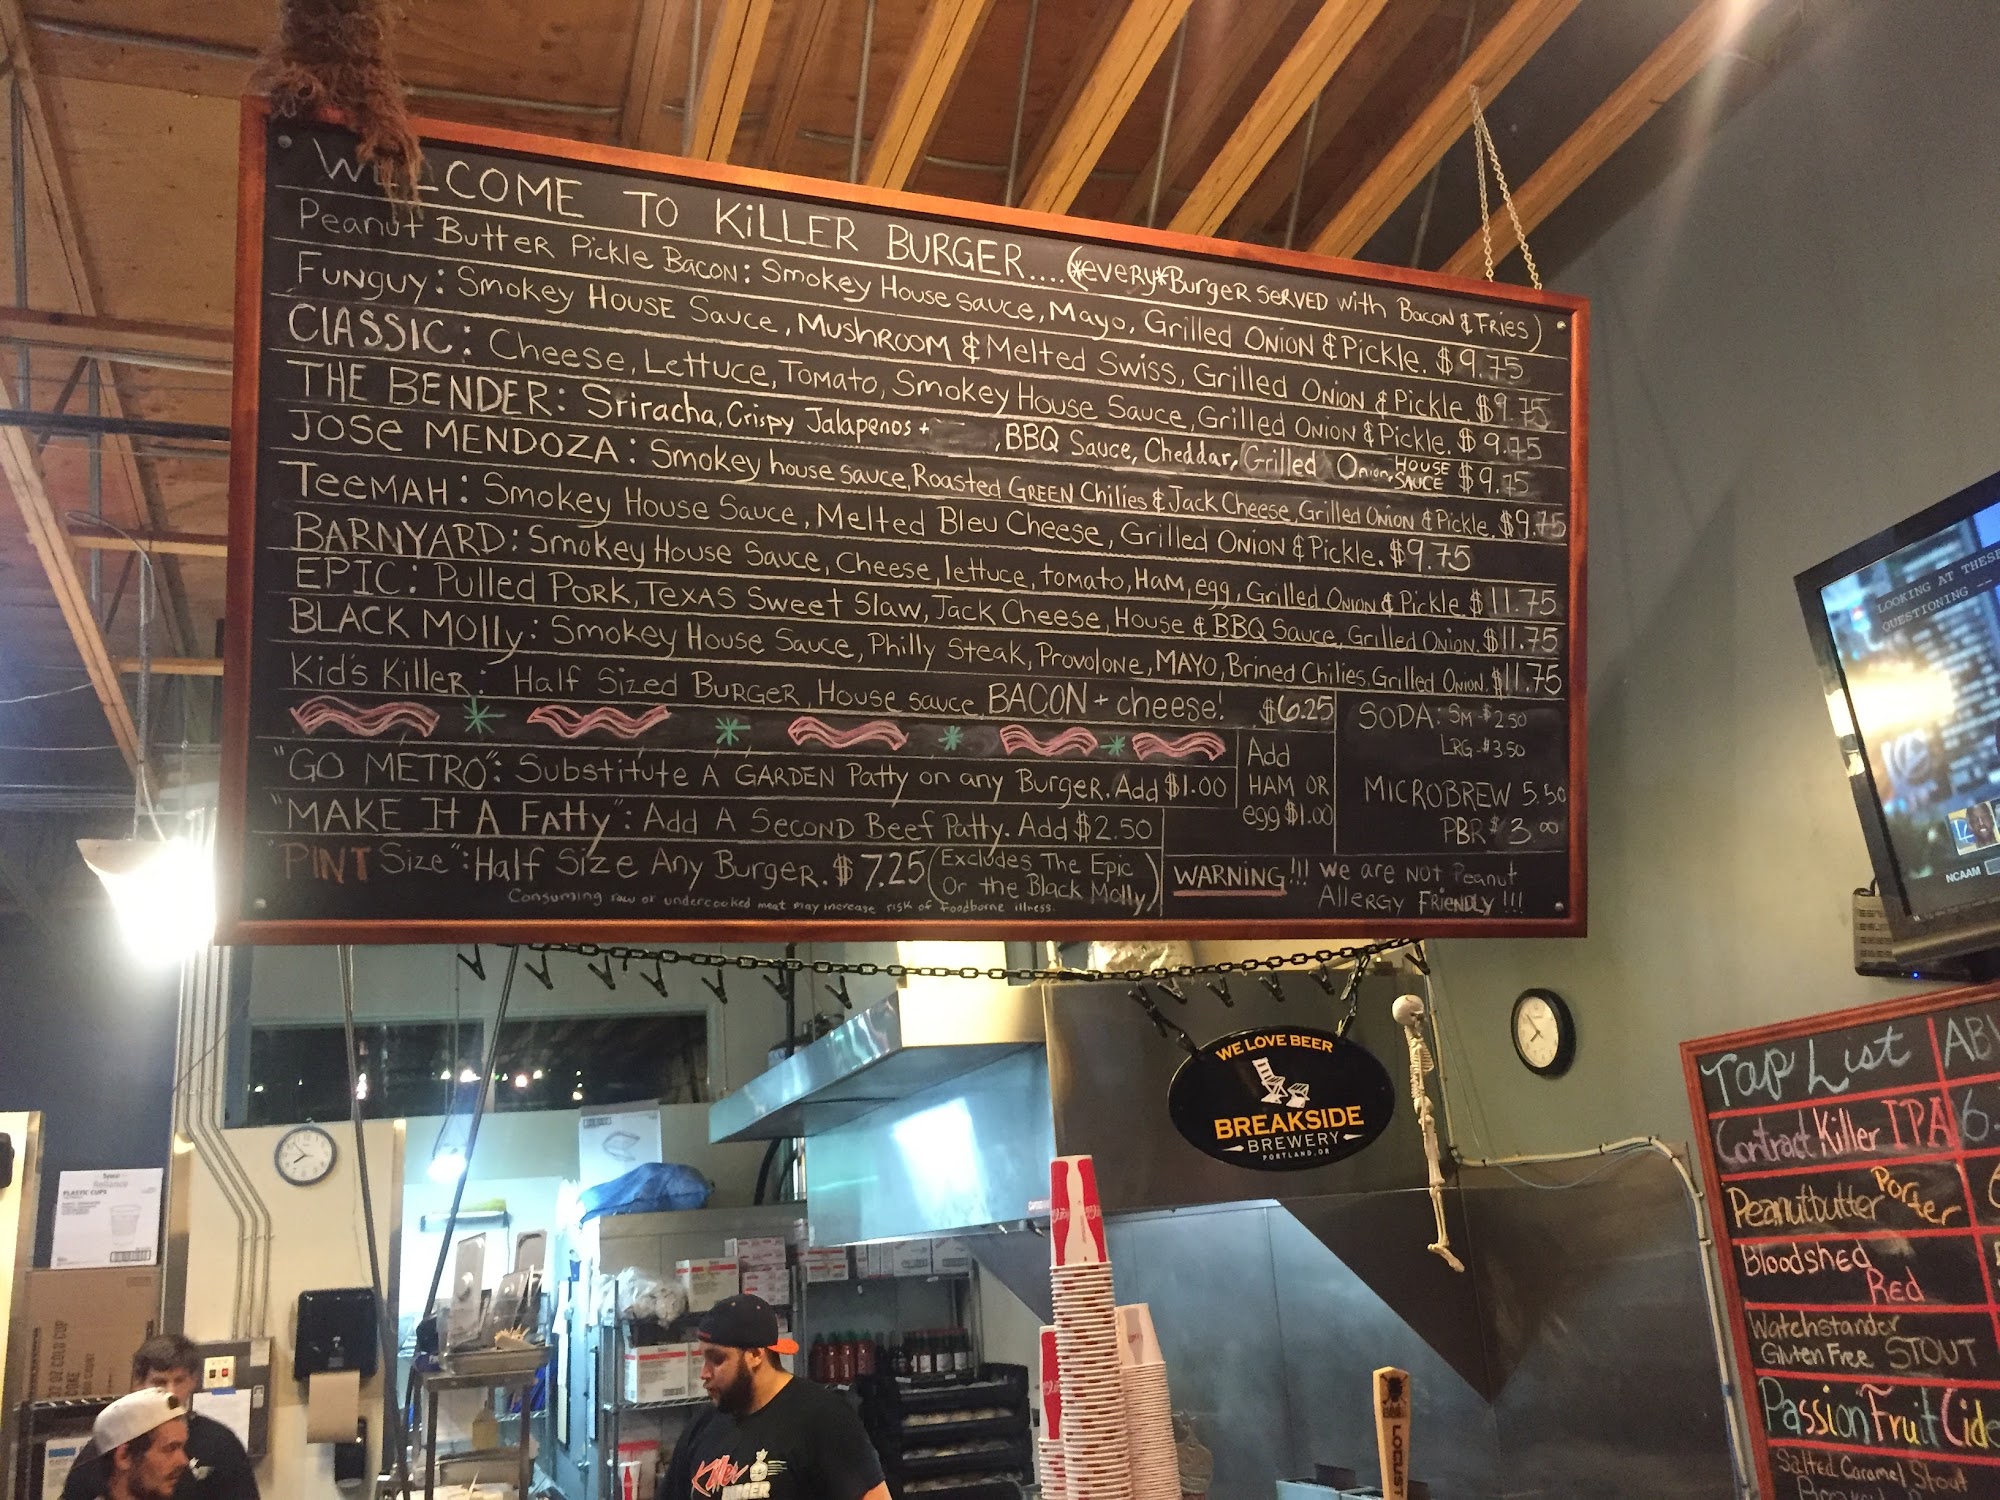 WELCOME TO KiLLER BURGER.... (*eveRy*BurgeR SeRVED with Bacon & Fries)
Peanut ButteR Pickle Bacon: Smokey House sauce, Mayo, Grilled Onion & Pickle. $9.75
Funguy: Smokey House Sauce, Mushroom & Melted Swiss, Grilled Onion & Pickle. $9.75
ClASSIC: Cheese, Lettuce, Tomato, Smokey House Sauce, Grilled Onion & Pickle. $9.75
THE BENDER: Sriracha, Crispy Jalapenos + , BBQ Sauce, Cheddar, Grilled Onion, HOUSE SAUCE $9.75
JOSe MENDOZA: Smokey house sauce, Roasted GREEN Chilies & Jack Cheese, Grilled Onion & Pickle. $9.75
TeeMAH: Smokey House Sauce, Melted Bleu Cheese, Grilled Onion & Pickle. $9.75
BARNYARD: Smokey House Sauce, Cheese, lettuce, tomato, Ham, egg, Grilled Onion & Pickle $11.75
EPIC: Pulled Pork, Texas Sweet Slaw, Jack Cheese, House & BBQ Sauce, Grilled Onion. $11.75
BLACK Molly: Smokey House Sauce, Philly Steak, Provolone, MAYO, Brined Chilies, Grilled Onion. $11.75
Kid's Killer: Half Sized Burger, House sauce, BACON + cheese! $6.25
SODA: Sm-$2.50
LRG-$3.50
"GO METRO": Substitute A GARDEN Patty on any Burger. Add $1.00
Add
HAM OR
egg $1.00
MICROBREW 5.50
PBR $3.00
"MAKE It A Fatty": Add A Second Beef Patty. Add $2.50
"PINT Size": Half Size Any Burger. $7.25 (Excludes The Epic
Or the Black Molly)
WARNING!!! We are not Peanut
Allergy Friendly!!!
Consuming raw or undercooked meat may increase risk of foodborne illness.
LOOKING AT THESE
QUESTIONING ...
NCAAM
WE LOVE BEER
BREAKSIDE
BREWERY
PORTLAND, OR
Tap List ABV
Contract Killer IPA 6.
Peanutbutter Porter
Bloodshed
Red
Watchstander
Gluten Free STOUT
Passion Fruit Cide
Salted Caramel Stout
PLASTIC CUPS
Reliance
32 OZ COLD CUP
COKE
Killer
BURGER
LOCUST